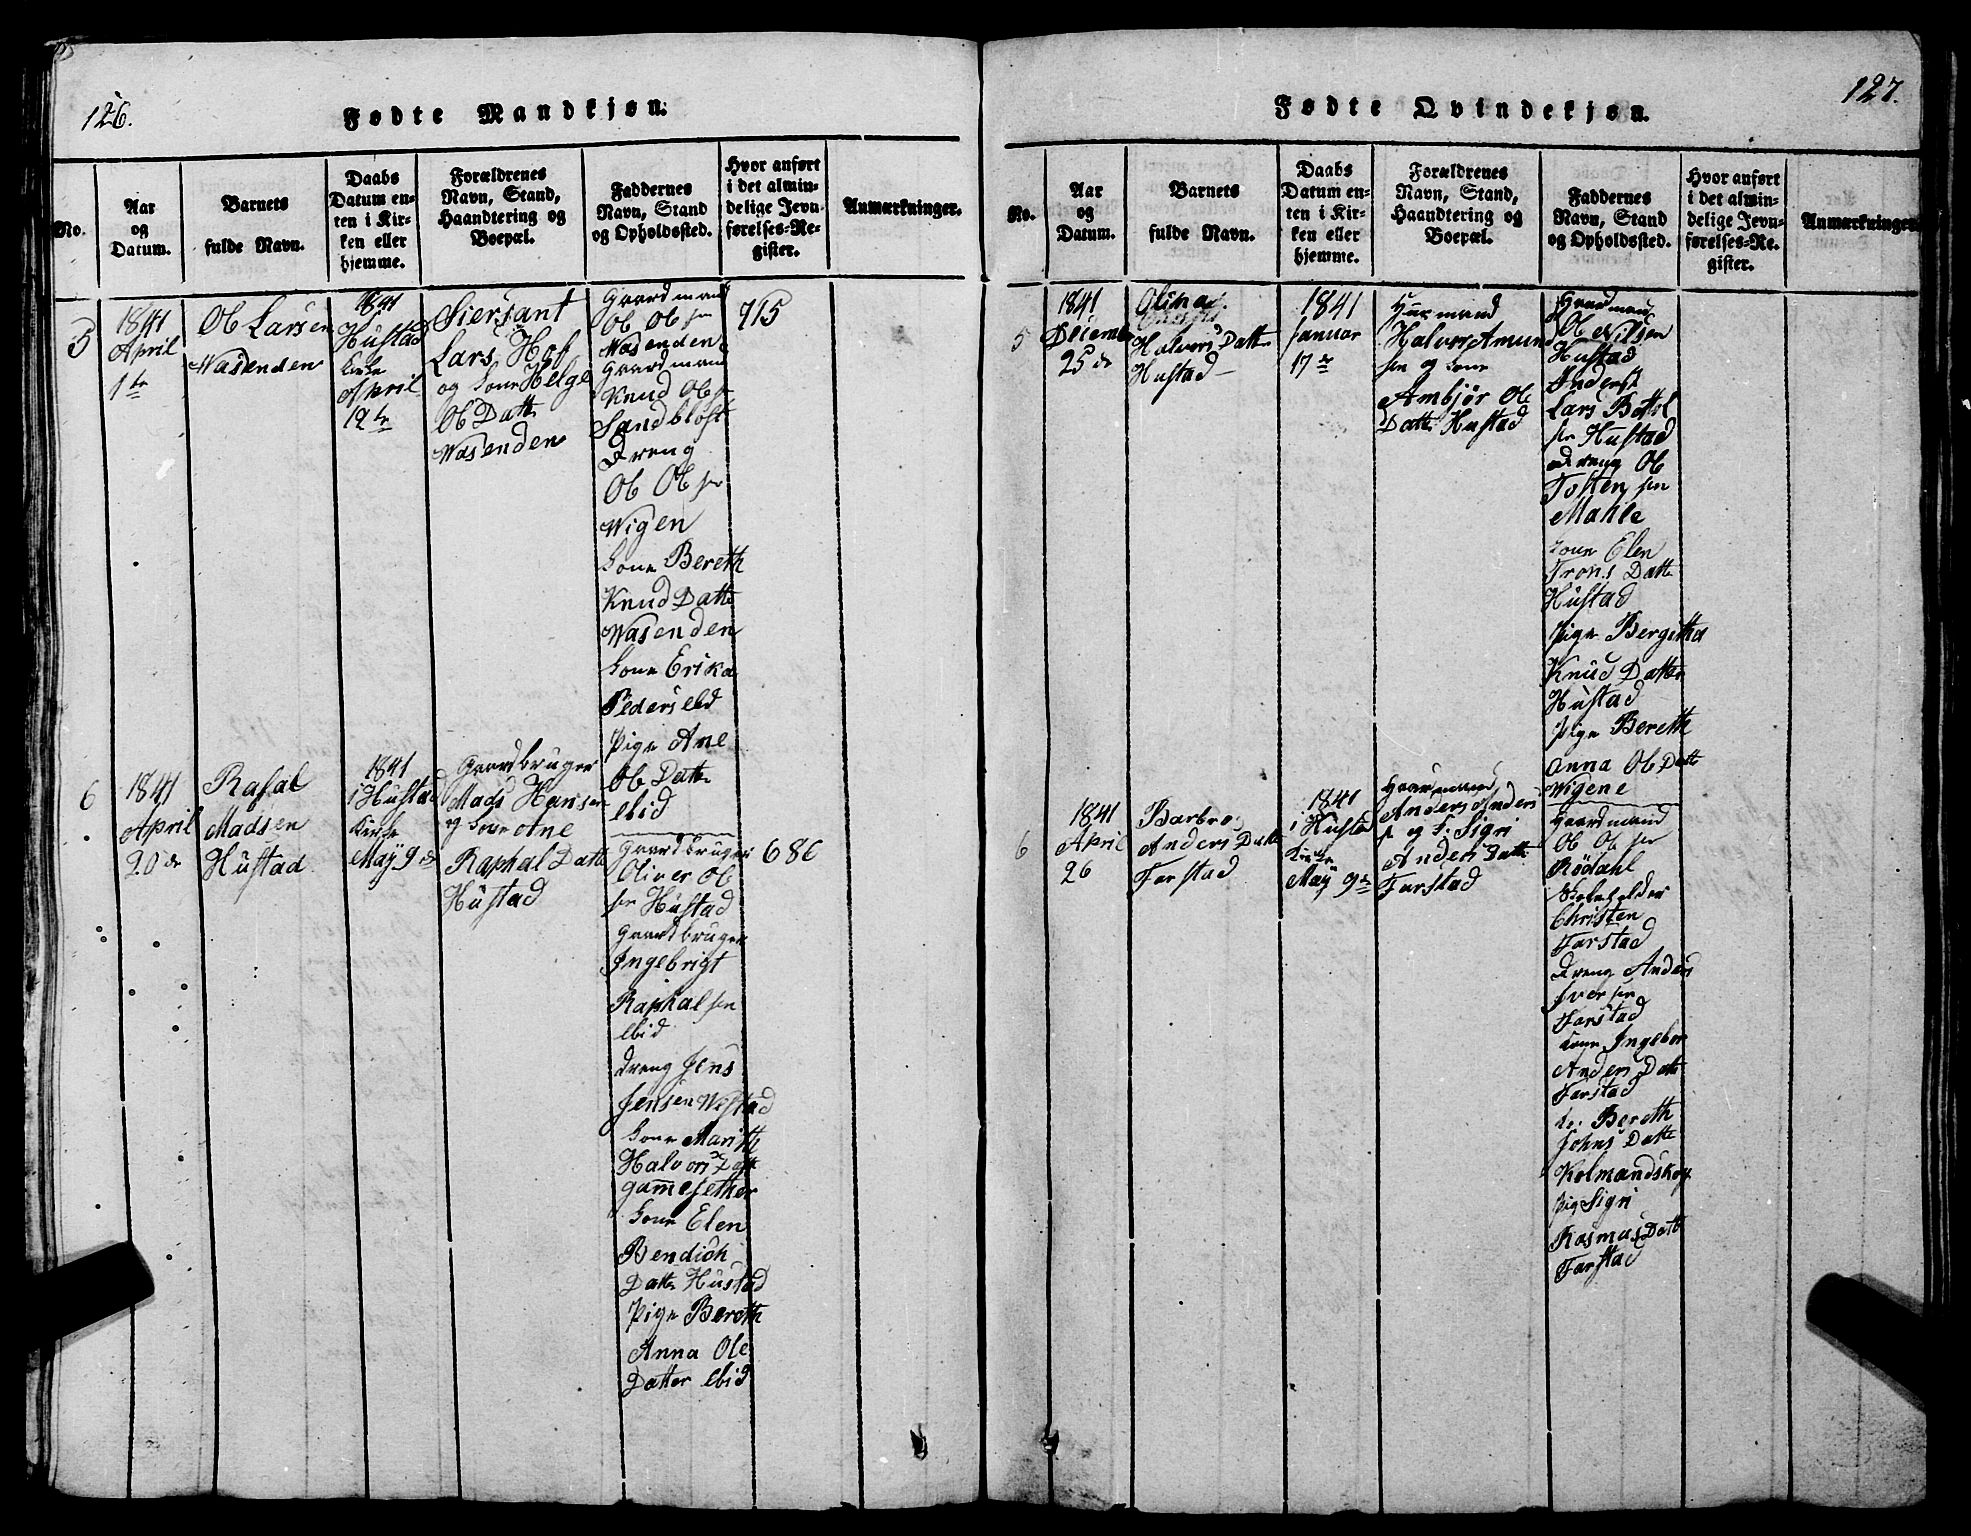 126.
Fødte Mandkjøn.
No.
Aar
og
Datum.
Barnets
fulde Navn.
Daabs
Datum en-
ten i Kir-
ken eller
hjemme.
Forældrenes
Navn, Stand,
Haandtering og
Boepæl.
Faddernes
Navn, Stand
og Opholdssted.
Hvor anført
i det almin-
delige Jevn-
førelses-Re-
gister.
Anmærkninger.
5
1841
April
1te
Ob Larsen
Wasenden
1841
Hustad
Kirke
April
12te
Siersant
Lars Hof
og Kone Helge
Ob Datte
Wasenden
Gaardmand
Ob Ob sen
Wasenden
Gaardmand
Knud Obs
Sandblost
Dreng
Ob Ob sen
Wigen
Kone Bereth
Knud Datte
Wasenden
Kone Erika
Peders ebd
Pige Ane
Ob Datte
ebid
715
6
1841
April
20de
Rafal
Madsen
Hustad
1841
i Hustad
Kirke
May 9de
Gaardbruger
Mads Hansen
og Kone Ane
Raphal Datte
Hustad
Gaardbruger
Oliver Ob
sen Hustad
Gaardbruger
Ingebrigt
Raphal sen
ebid
dreng Jens
Jensen Westad
Kone Marith
Halvors Datt
gammesether
Kone Elen
Bendich
Datte Hustad
Pige Bereth
Anna Ole
Datter ebid
686
127.
Fødte Qvindekjøn.
No.
Aar
og
Datum.
Barnets
fulde Navn.
Daabs
Datum en-
ten i Kir-
ken eller
hjemme.
Forældrenes
Navn, Stand,
Haandtering og
Boepæl.
Faddernes
Navn, Stand
og Opholdssted.
Hvor anført
i det almin-
delige Jevn-
førelses-Re-
gister.
Anmærkninger
5
1841
Deiemb
25de
Olina
Halvors Datte
Hustad
1841
Januar
17de
Huusmand
Halvor Amund
sen og Kone
Ambjør Ob
Datte Hustad
Gaardmand
Ob Nilsen
Hustad
Inderst
Lars Bottol
sen Hustad
dreng Ob
Tosten sen
Mahle
Kone Elen
Trons Datte
Hustad
Pige Bergitha
Knud Datter
Hustad
Pige Bereth
Anna Ob Datte
Wigene
6
1841
April
26
Barbro
Anders Datte
Farstad
1841
i Hustad
Kirke
May 9de
Gaardmand
Anders Anders
s. og K. Sigri
Anders Datte
Farstad
Gaardmand
Ob Ob sen
Rödahl
Skoleholder
Christen
Farstad
Dreng Anders
Iver sen
Farstad
Kone Ingebor
Anders Datte
Farstad
Bereth
Johns Datte
Kolmandskog
Pig Sigri
Rasmus Datte
Farstad